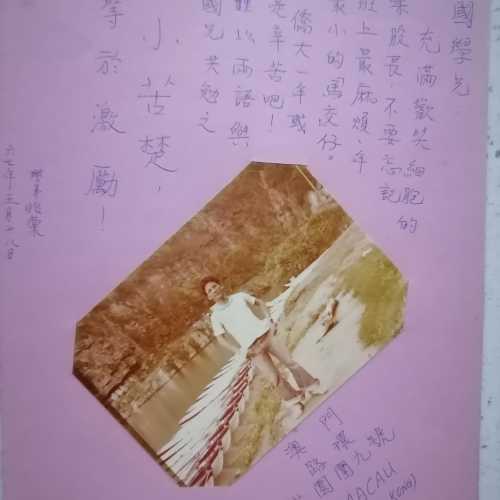 國學兄
充滿歡笑細胞的
股長,不要忘記
班上最麻煩、年
最小的馬交仔。
僑大一年或
辛苦吧!
以兩語與
國兄共勉之
小苦楚,
等於激勵!
六七年五月廿八日
澳門
路環
九號
MACAU